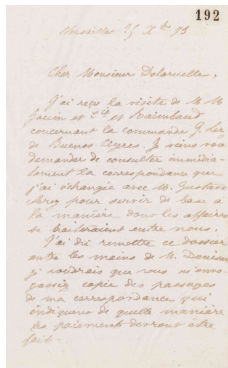 192
Marseille 25 Xbre 93
Cher Monsieur Delaruelle,
J'ai reçu la visite de M. M.
et Cie et Raimbaud
concernant la commande G.
de Buenos Ayres. Je viens vous
demander de consulter immédia-
tement la correspondance que
j'ai échangée avec M. Gustave
pour servir de base à
la manière dont les affaires
se traiteraient entre nous.
J'ai dû remettre ce dossier
entre les mains de M. Denison
je voudrais que vous m'envo-
yassiez copie des passages
de ma correspondance qui
indiquent de quelle manière
les paiements devront être
fait.